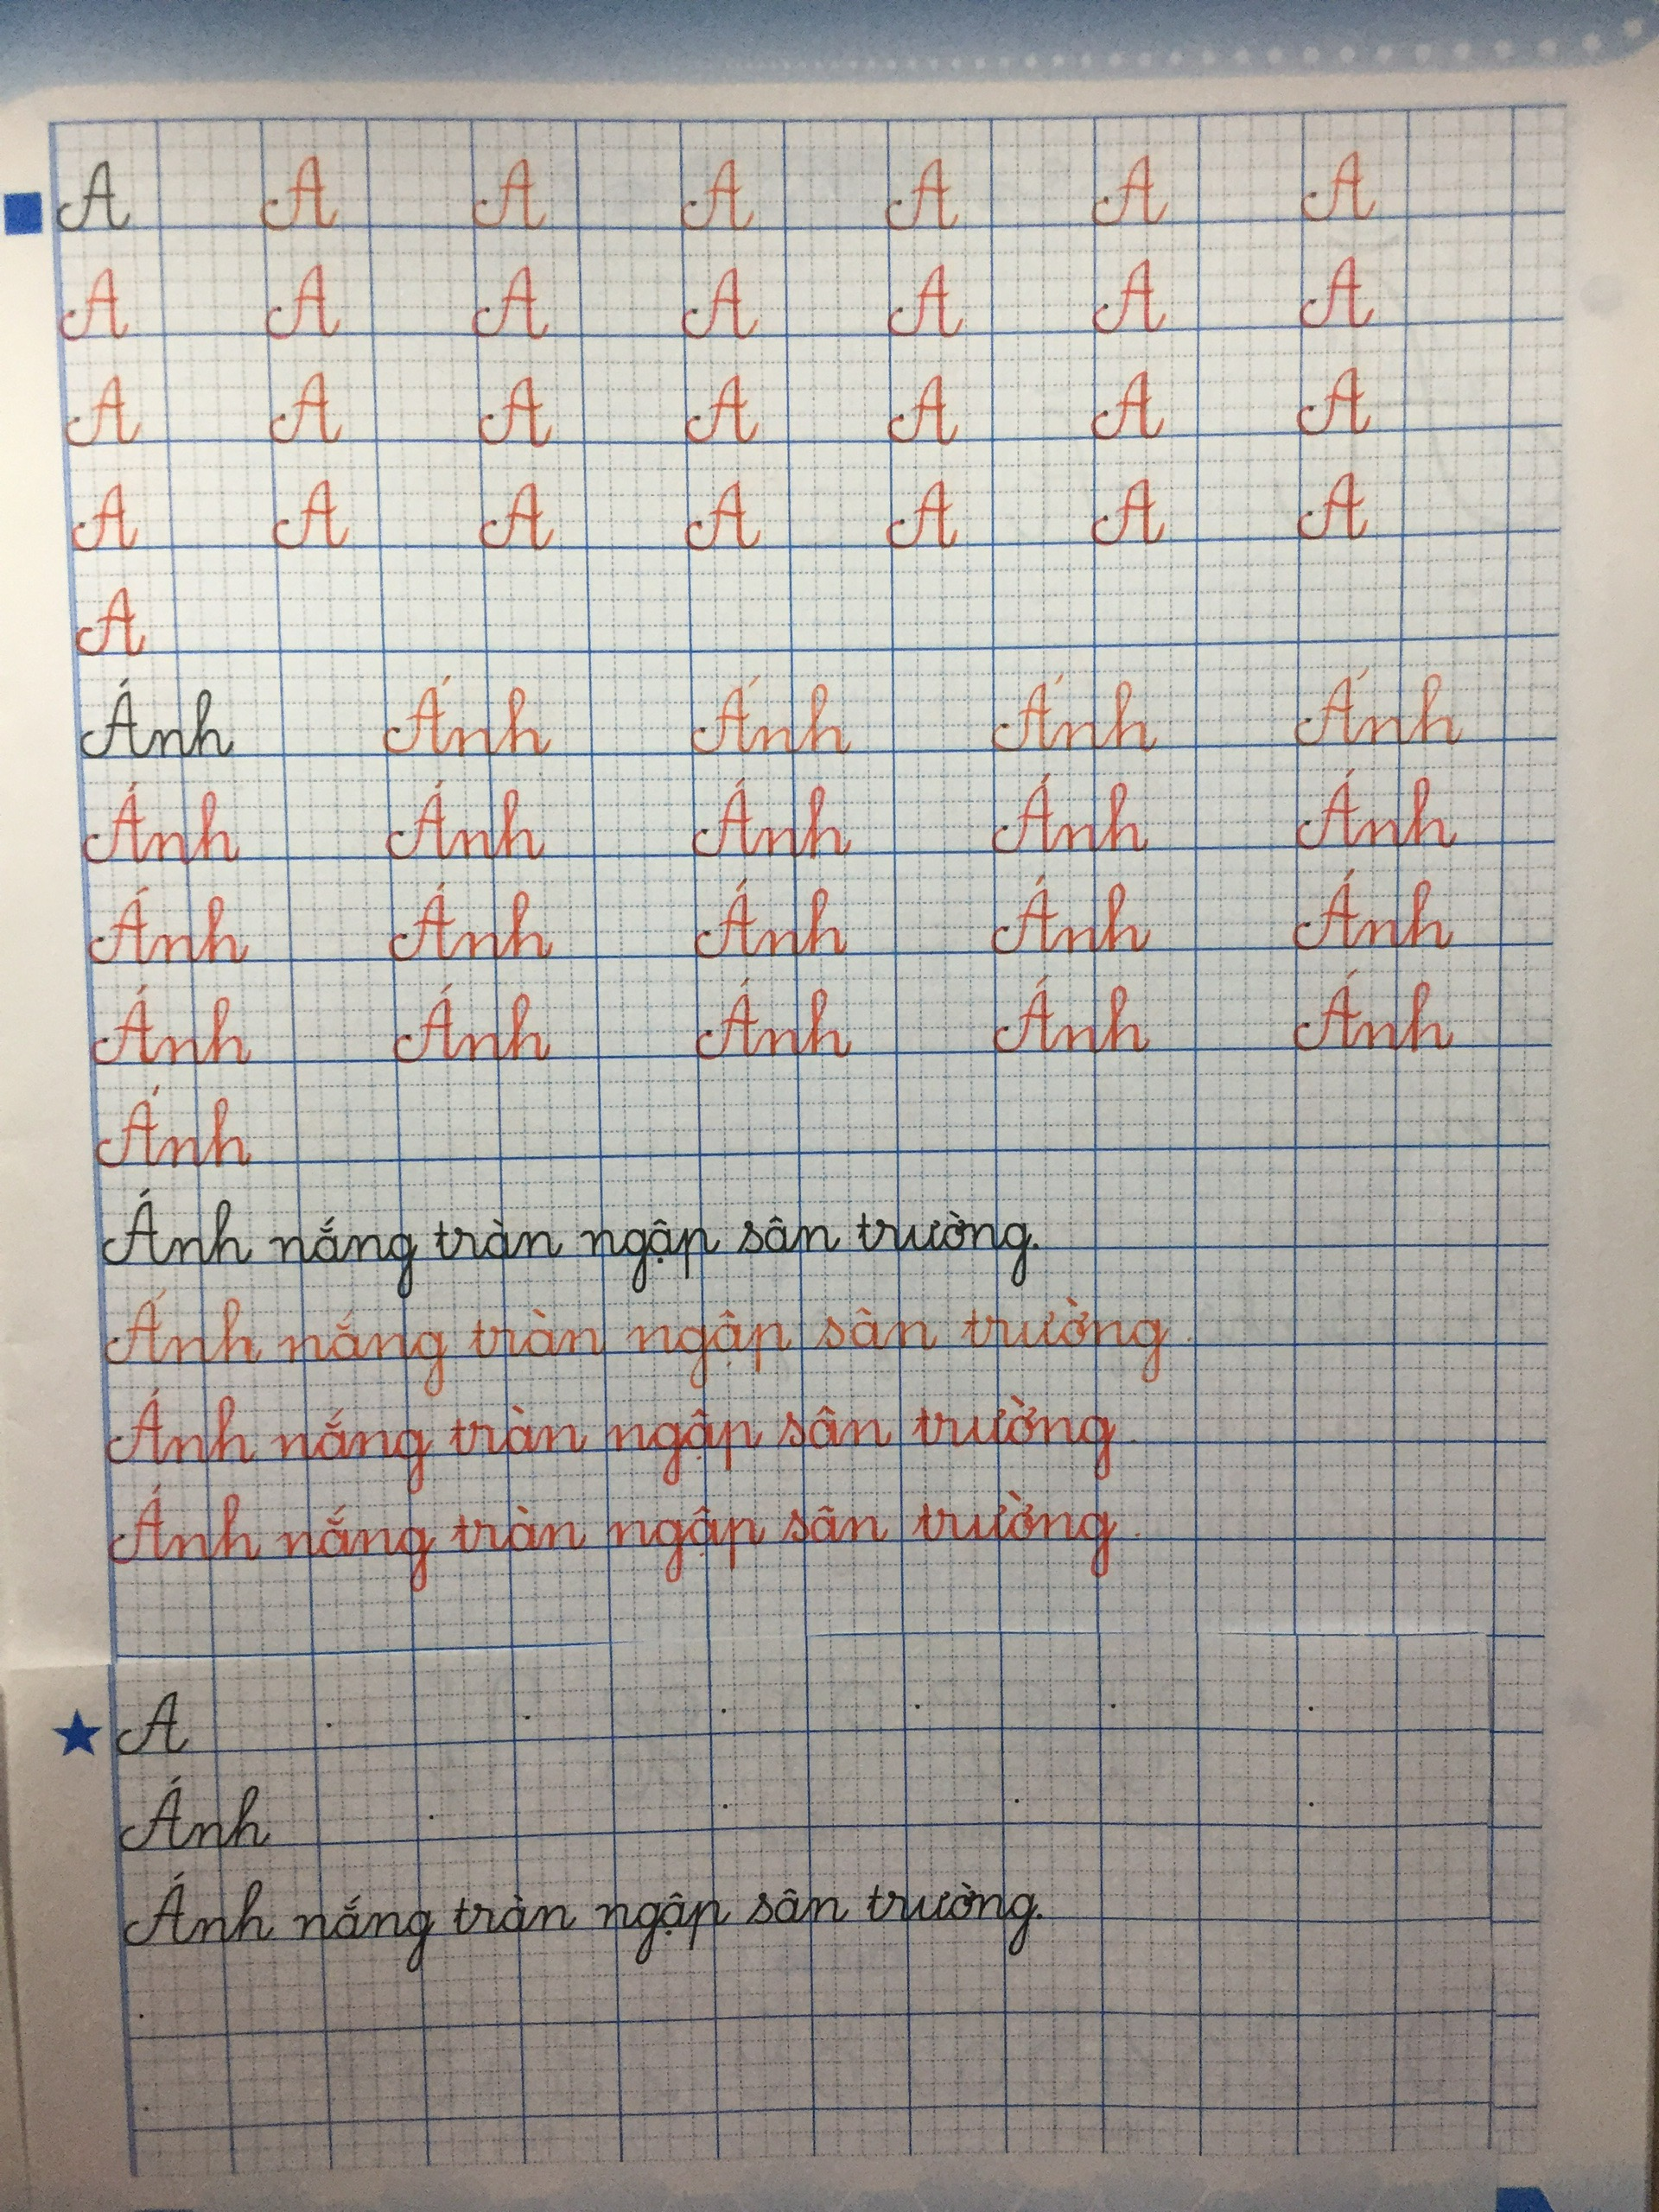 A A A A A A A
A A A A A A A
A A A A A A A
A A A A A A A
A
Ánh Ánh Ánh Ánh Ánh
Ánh Ánh Ánh Ánh Ánh
Ánh Ánh Ánh Ánh Ánh
Ánh Ánh Ánh Ánh Ánh
Ánh
Ánh nắng tràn ngập sân trường.
Ánh nắng tràn ngập sân trường.
Ánh nắng tràn ngập sân trường.
Ánh nắng tràn ngập sân trường.
A
Ánh
Ánh nắng tràn ngập sân trường.